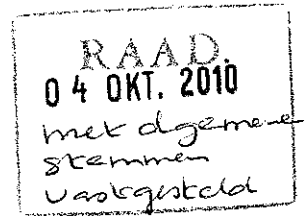 RAAD.
04 OKT. 2010
met algemene
stemmen
vastgesteld